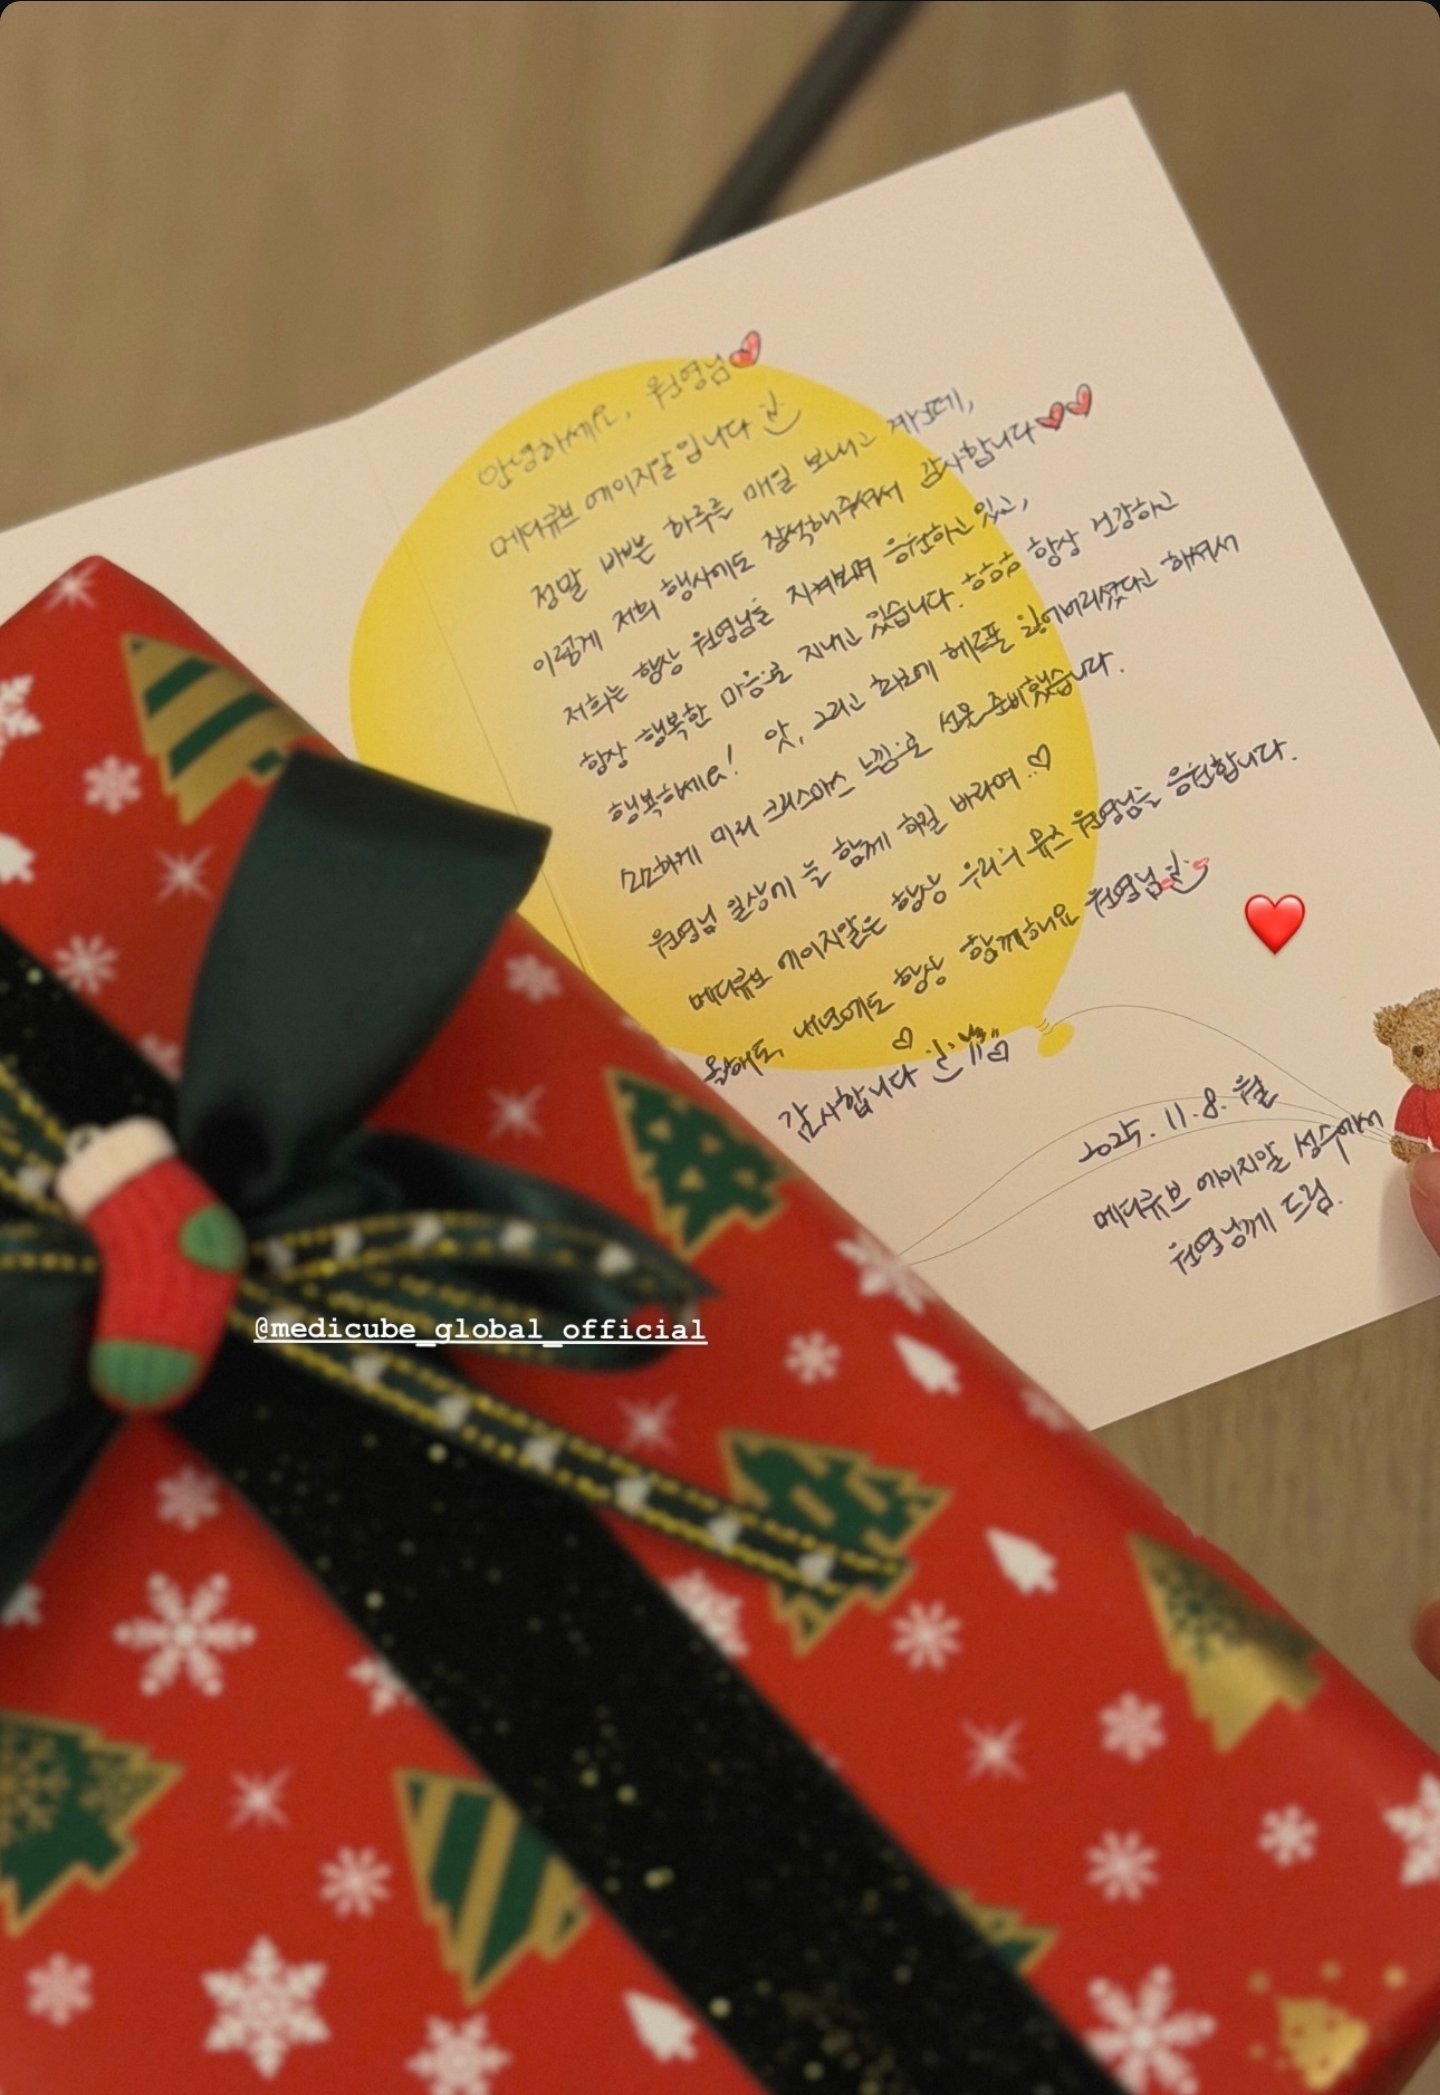 안녕하세요, 원영님
메디큐브 에이지알입니다
정말 바쁜 하루를 매일 보내고 계신데,
이렇게 저희 행사에도 참석해주셔서 감사합니다
저희는 항상 원영님을 지켜보며 응원하고 있고,
항상 행복한 마음으로 지내고 있습니다. ㅎㅎㅎ 항상 건강하고
행복하세요! 앗, 그리고 잃어버리셨다고 해서
소소하게 미리 크리스마스 느낌으로 선물 준비했습니다.
원영님 일상에 늘 함께 하길 바라며..♡
메디큐브 에이지알은 항상 우리의 뮤즈 원영님을 응원합니다.
올해도, 내년에도 항상 함께해요 원영님
감사합니다
2025. 11. 8. 월
메디큐브 에이지알 성수에서
원영님께 드림.
@medicube_global_official